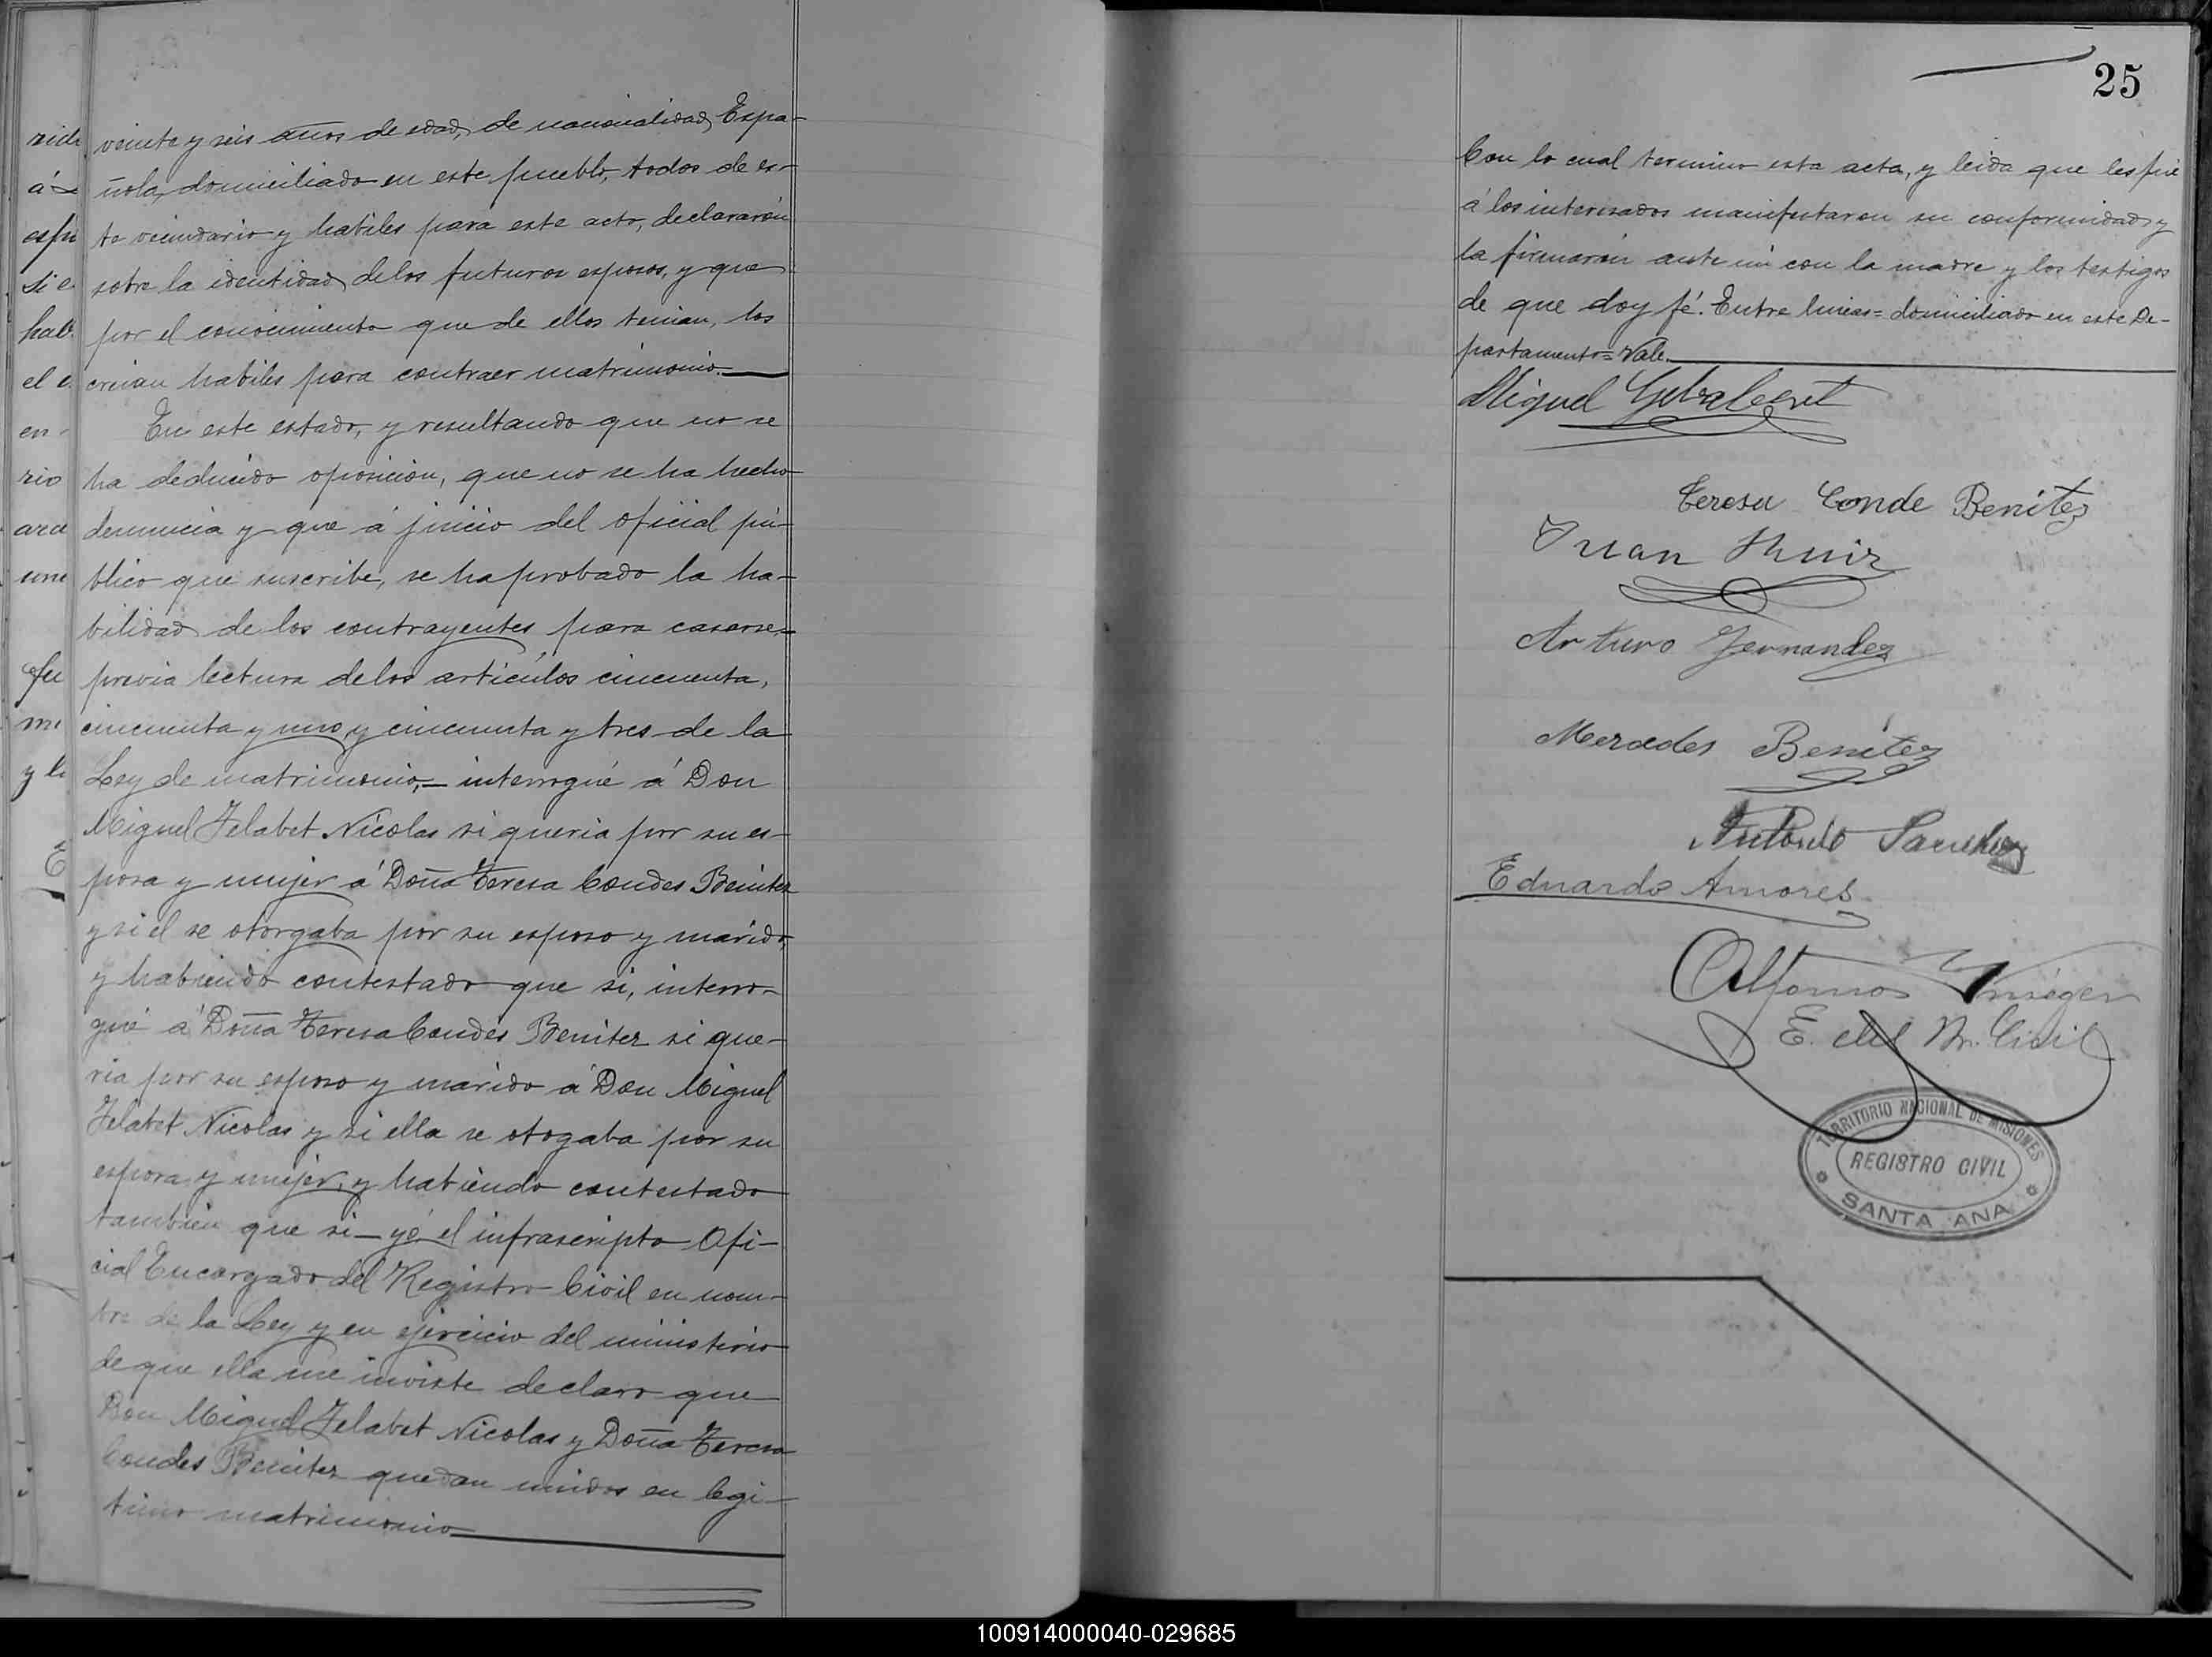 veinte y seis años de edad, de nacionalidad Espa-
ñola, domiciliado en este pueblo, todos de es-
te vecindario y habiles para este acto, declararon
sobre la identidad de los futuros esposos, y que
por el conocimiento que de ellos tenian, los
creian habiles para contraer matrimonio.
En este estado, y resultando que no se
ha deducido oposicion, que no se ha hecho
denuncia y que á juicio del oficial pú-
blico que suscribe, se ha probado la ha-
bilidad de los contrayentes para casarse
previa lectura de los artículos cincuenta,
cincuenta y uno, y cincuenta y tres de la
Ley de matrimonio,— interrogué á Don
Miguel Jelabet Nicolas si queria por su es-
posa y mujer á Doña Teresa Condes Benitez
y si el se otorgaba por su esposo y marido,
y habiendo contestado que si, interro-
gué á Doña Teresa Condes Benitez si que-
ria por su esposo y marido á Don Miguel
Jelabet Nicolas y si ella se otogaba por su
esposa y mujer, y habiendo contestado
tambien que si — yó el infrascripto Ofi-
cial Encargado del Registro Civil en nom-
bre de la Ley y en ejercicio del ministerio
de que ella me inviste declaro que
Don Miguel Jelabet Nicolas y Doña Teresa
Condes Benitez quedan unidos en legi-
timo matrimonio
25
Con lo cual termino esta acta, y leida que les fué
á los interesados manifestaron su conformidad y
la firmarón ante mi con la madre y los testigos
de que doy fé. Entre lineas= domiciliado en este De-
partamento= Vale.
Miguel
Teresa Conde Benitez
Juan Ruiz
Arturo Fernandez
Mercedes Benítez
Antonio Sanchez
Eduardo Amores
Alfonso
E. del R. Civil
TERRITORIO NACIONAL DE MISIONES
REGISTRO CIVIL
SANTA ANA
100914000040-029685